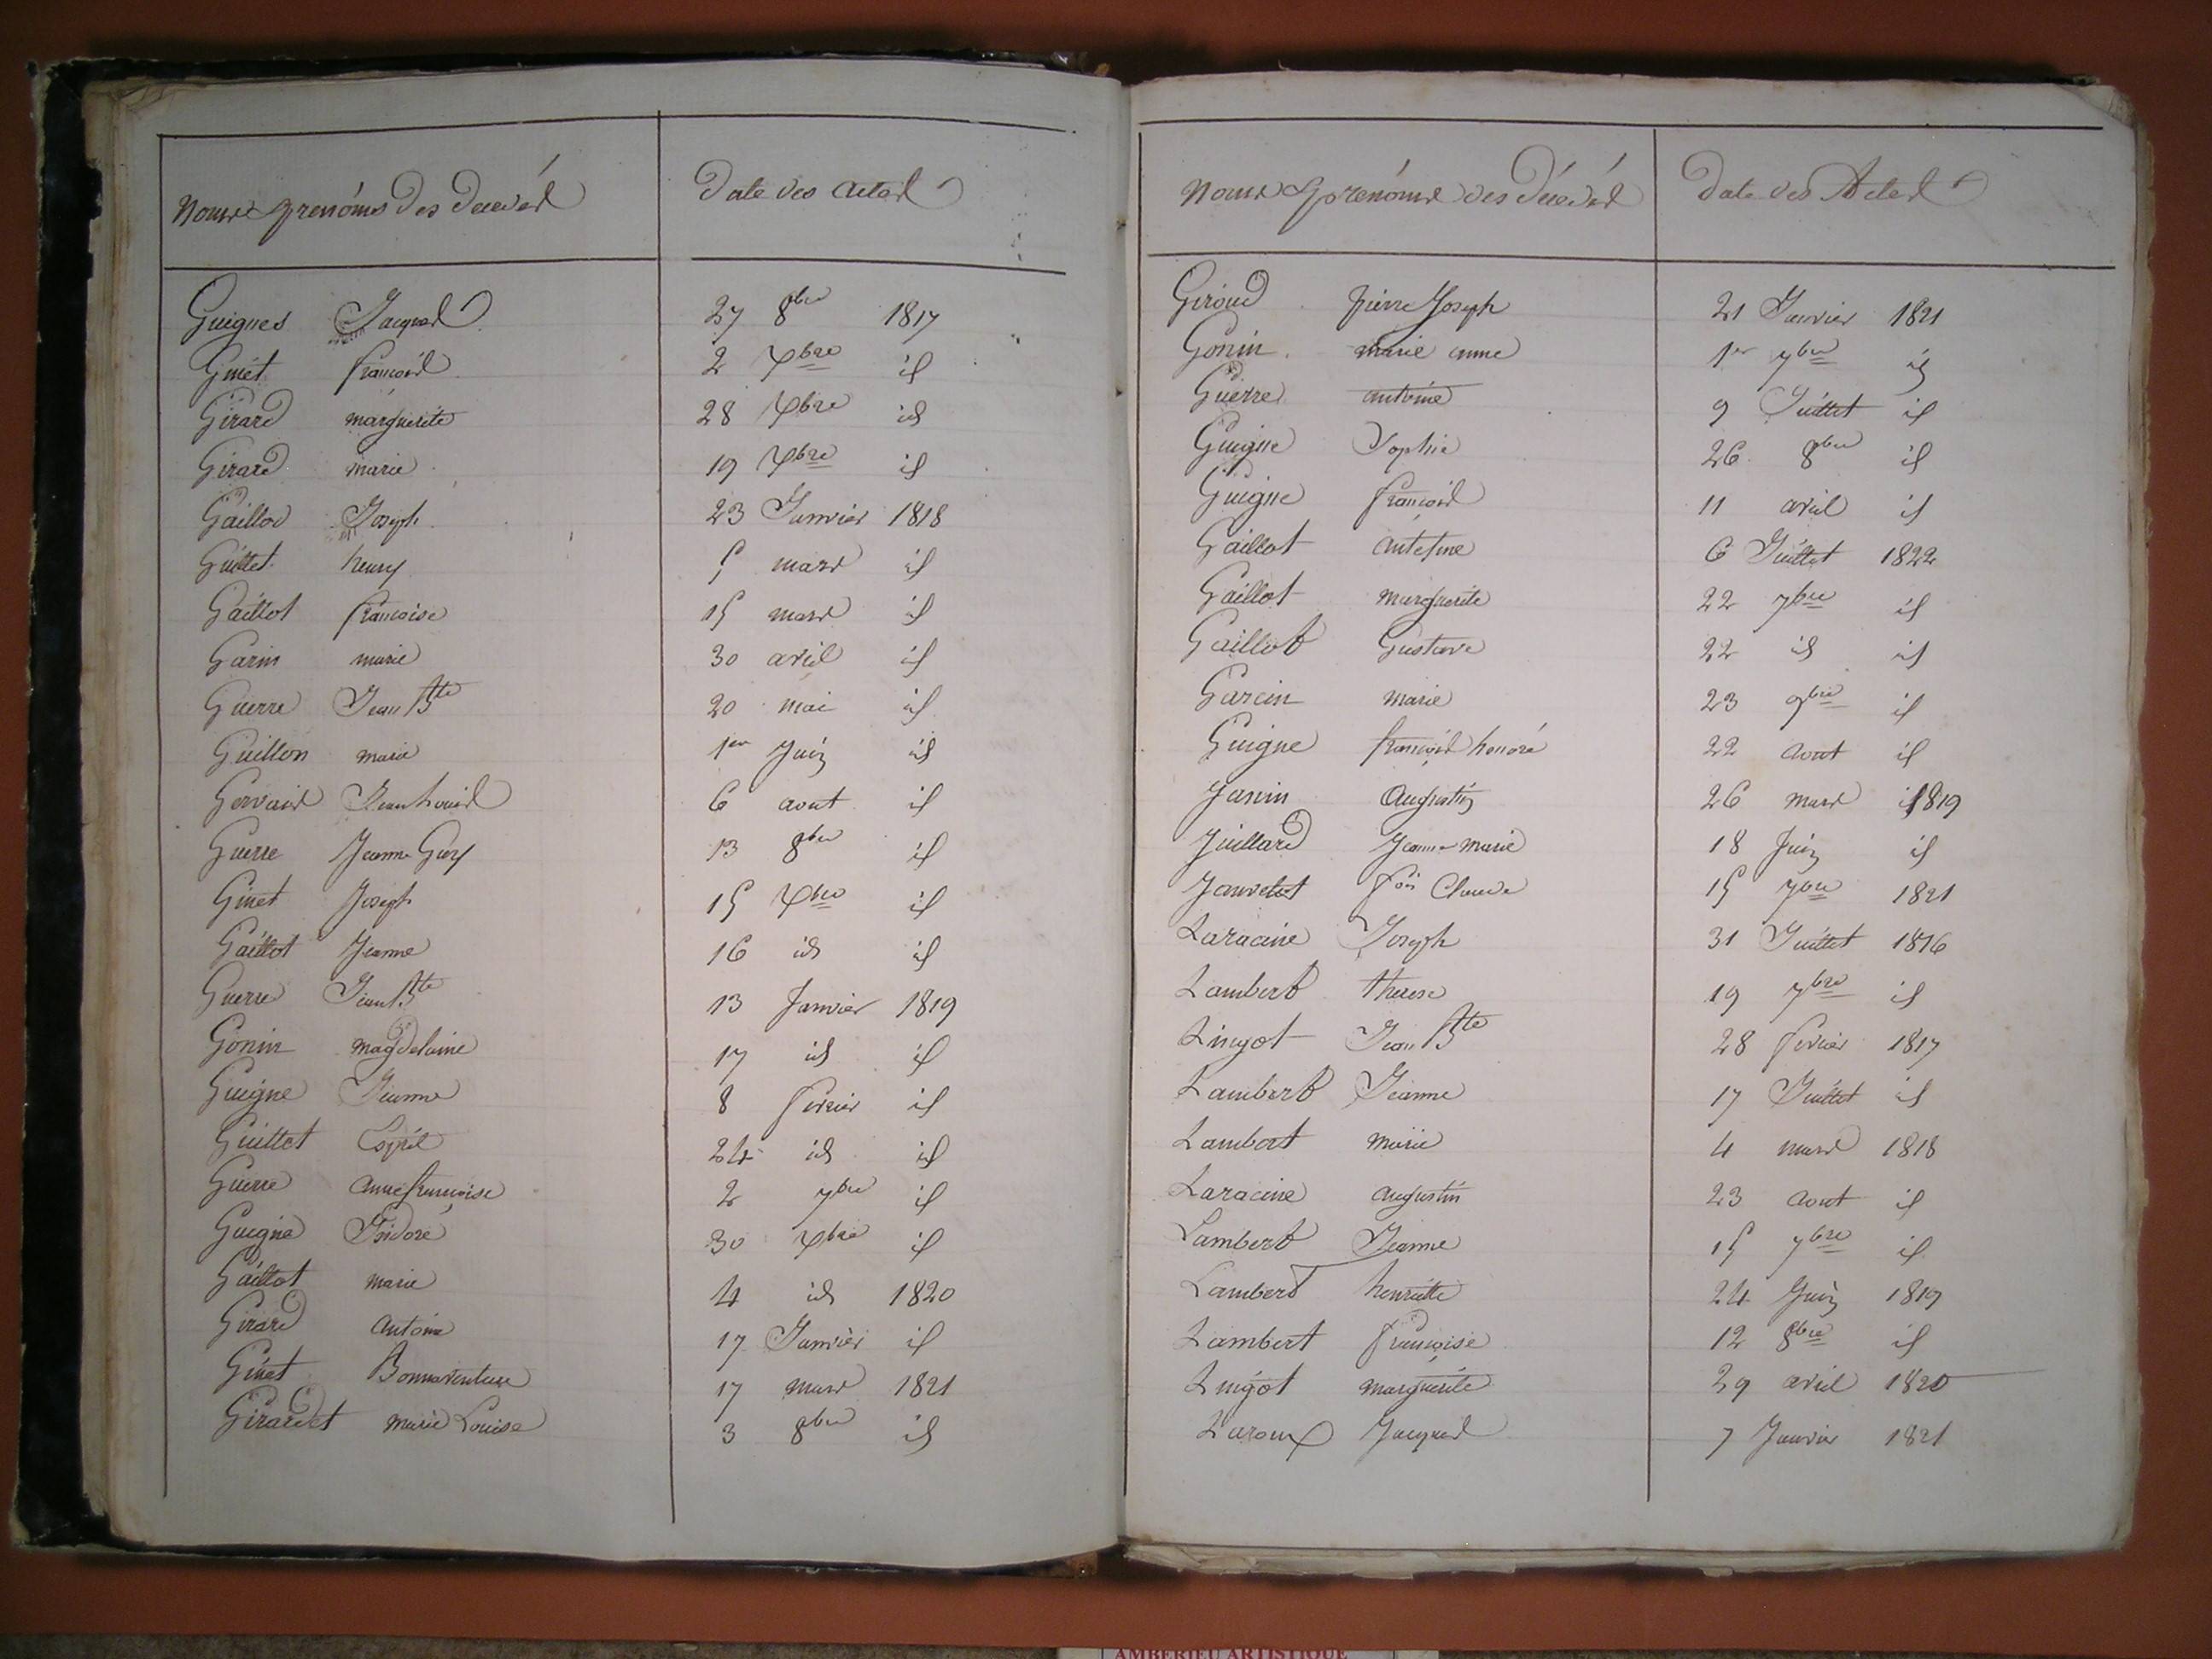 Noms & prenoms des decedés
Date des actes
Guignes Jacques 27 8bre 1817
Ginet françois 2 Xbre id
Girard marguerite 28 Xbre id
Girard marie 19 Xbre id
Gaillod Joseph 23 Janvier 1818
Guillet henry 5 mars id
Gaillot françoise 15 mars id
Garin marie 30 avril id
Guerre Jean Bte 20 mai id
Guillon marie 1er Juin id
Gervais Jean Louis 6 aout id
Guerre Jeanne Guy 13 8bre id
Ginet Joseph 15 Xbre id
Gaillot Jeanne 16 id id
Guerre Jean Bte 13 Janvier 1819
Gonin magdelaine 17 id id
Guigne Jeanne 8 fevrier id
Guillet Esprit 24 id id
Guerre anne françoise 2 7bre id
Guigne Isidore 30 Xbre id
Gaillot marie 4 id 1820
Girard antoine 17 Janvier id
Ginet Bonnaventure 17 mars 1821
Girardet marie Louise 3 8bre id
Noms & prenoms des décédés
Date des Actes
Giroud pierre Joseph 21 Janvier 1821
Gonin marie anne 1er 7bre id
Guerre antoine 9 Juillet id
Guigne Sophie 26 8bre id
Guigne françois 11 avril id
Gaillot 6 Juillet 1822
Gaillot marguerite 22 7bre id
Gaillot Gustave 22 id id
Garcin marie 23 9bre id
Guigne françois honoré 22 aout id
Janin Augustin 26 mars 1819
Juillard Jeanne marie 18 Juin id
Janvelot fois Claude 15 7bre 1821
Laracine Joseph 31 Juillet 1816
Lambert therese 19 7bre id
Lingot Jean Bte 28 fevrier 1817
Lambert Jeanne 17 Juillet id
Lambert marie 4 mars 1818
Laracine augustin 23 aout id
Lambert Jeanne 15 7bre id
Lambert henriette 24 Juin 1819
Lambert françoise 12 8bre id
Lingot marguerite 29 avril 1820
Laroux Jacques 7 Janvier 1821
AMBERIEU ARTISTIQUE